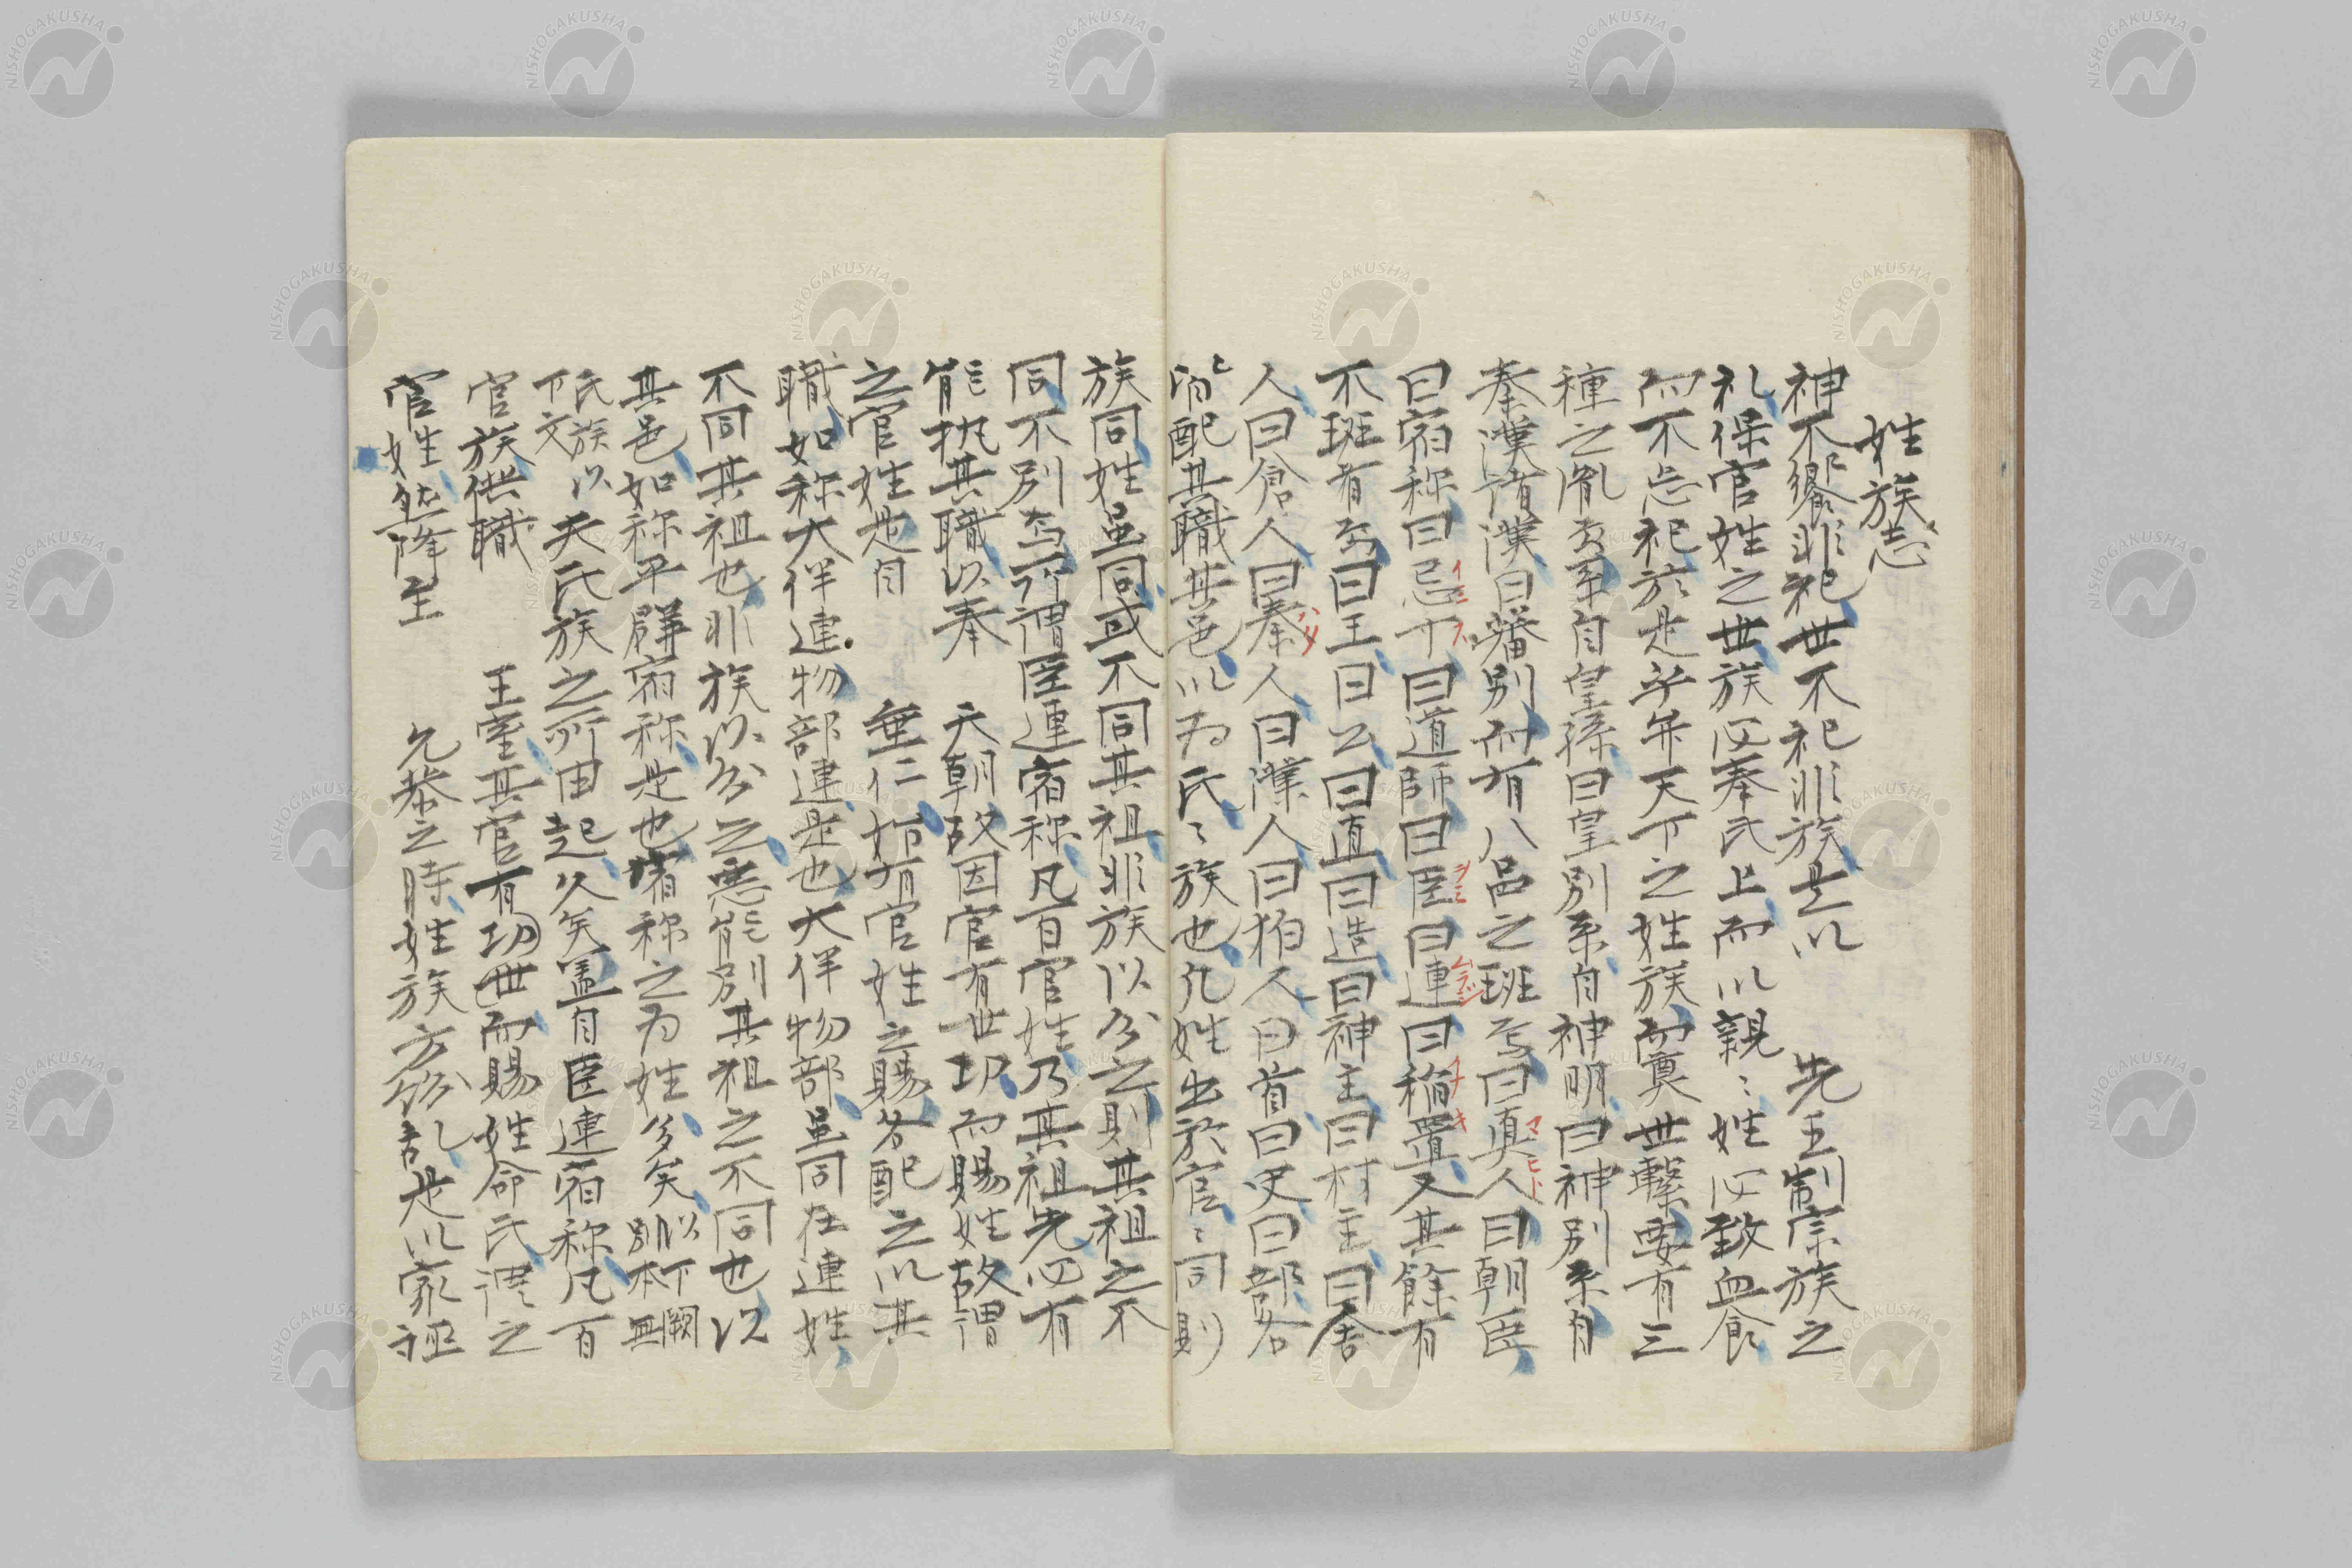 姓族志
神不饗非祀世不祀非族是以　先王制宗族之
礼保官姓之世族必奉氏上而以親〻姓必致血食
而不忘祀於是乎年天下之姓族而奠世繫要有三
種之胤系自皇孫曰皇別系自神明曰神別系自
秦漢者漢曰蕃別而有八邑之班焉曰真人曰朝臣
曰宿祢曰忌寸曰道師曰臣曰連曰稲置又其餘有
不班者焉曰王曰公曰直曰造曰神主曰村主曰舎
人曰倉人曰秦人曰漢人曰狛人曰首曰史曰部各
配其職其邑以為氏〻族也凡姓出於官〻同則
族同姓虽同或不同其祖非族以分之則其祖之不
同不別焉所謂臣連宿祢凡百官姓乃其祖先必有
能执其職以奉　天朝故因官有世功而賜姓故謂
之官姓是自　垂仁始有官姓之賜各配之以其
職如称大伴連物部連是也大伴物部虽同在連姓
不同其祖也非族以分之悪能別其祖之不同也以
其邑如称平群宿祢是也宿祢之为姓多矣以下闕別本無
氏族以下文夫氏族之所由起久矣盖自臣連宿祢凡百
官族供職　王室其官有功世而賜姓命氏謂之
官姓然降至　允恭之時姓族方紛乱是以家誣
マヒト
イミ
ヲミ
ムラジ
イナキ
NISHOGAKUSHA